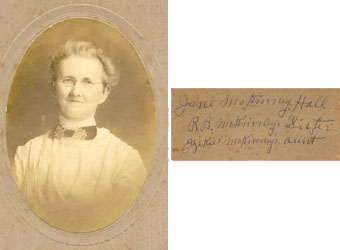 Jane McKinney Hall
R.B. McKinneys Sister
Ezikel McKinneys aunt